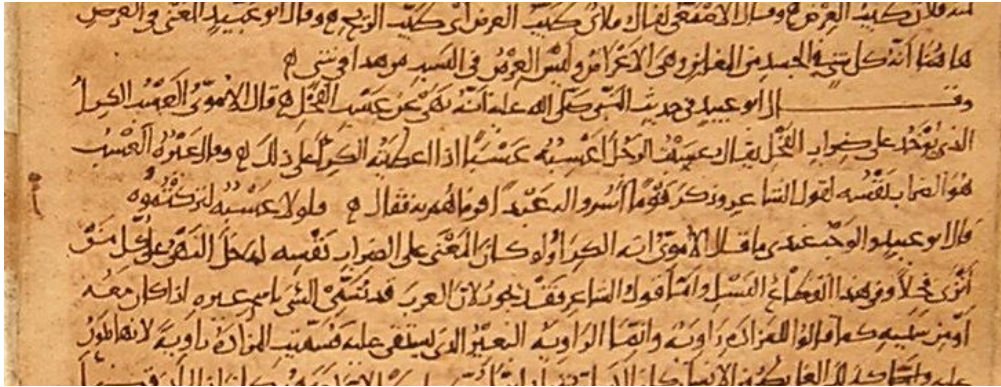 فلان كتيب العرض وقال الاصمعي يقال فلان كتيب العرض اي كتيب الريح وقال ابو عبيد المعنى في العرض
ها هنا انه كل شي في الجسد من المغابن وهي الاعراض وليس العرض في النسب من هذا في شي
وقال ابو عبيد في حديث النبي صلى الله عليه انه نهى عن عسب الفحل قال الاموي العسب الكراء
الذي يوخذ على ضراب الفحل يقال عسبت الرجل اعسبه عسبا اذا اعطيته الكرا على ذلك وقال غيره العسب
هو الضراب نفسه لقول الشاعر وذكر قوما اسروا له عبدا فرماهم به فقال ولولا عسبه لتركتموه
قال ابو عبيد والوجه عندي ما قال الاموي انه الكراء ولو كان المعنى على الضراب نفسه لدخل النهي على كل من
انزى فحلا وفي هذا انقطاع النسل واما قول الشاعر فقد يجوز لان العرب قد تسمي الشي باسم غيره اذا كان معه
او من سببه كما قالوا للمزادة راوية وانما الراوية البعير الذي يستقى عليه فسميت المزادة راوية لانها تكون